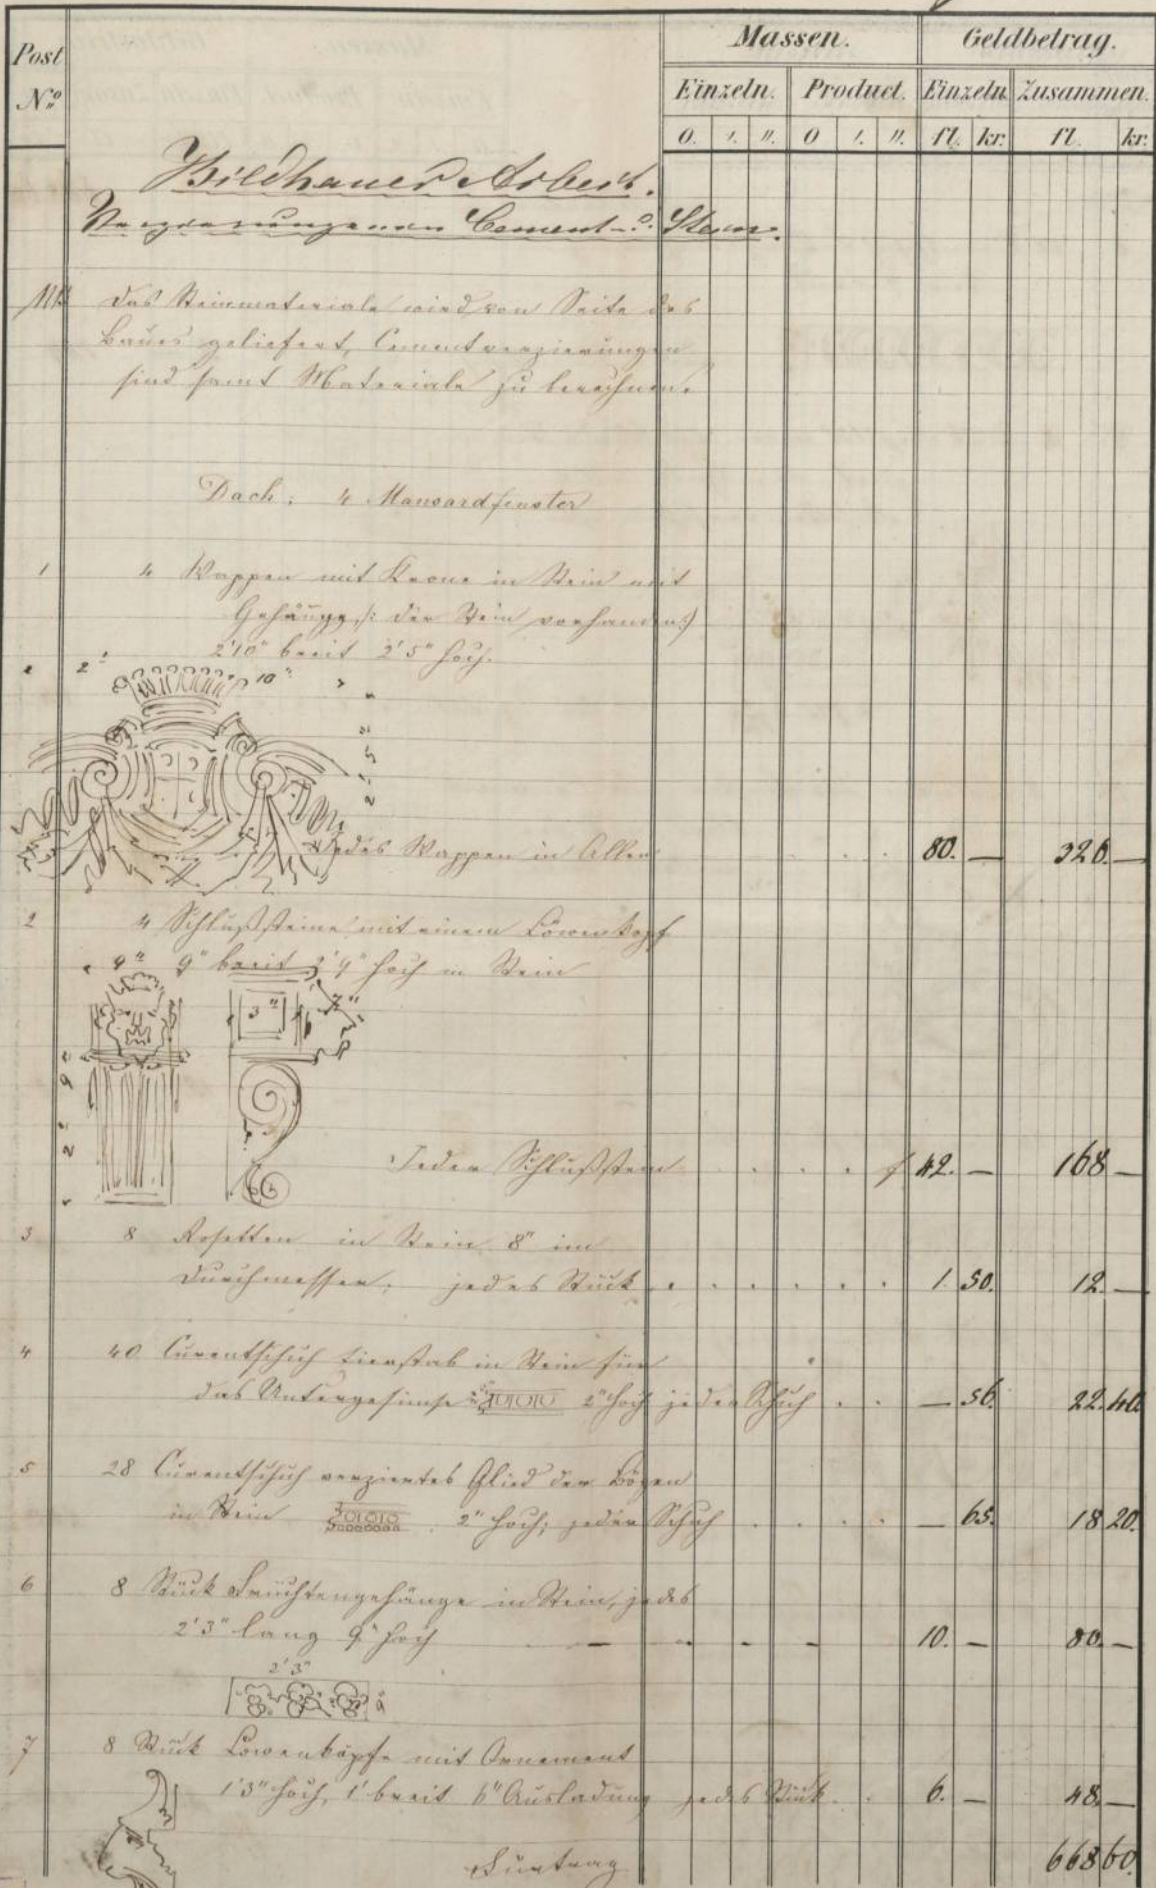 Massen. Geldbetrag.
Post
No. Einzeln. Product. Einzeln Zusammen.
0. '. ''. 0 '. ''. fl. kr. fl. kr.
Bildhauer Arbeit.
Verzierungen von Cement- u. Stein.
Das Steinmateriale wird von Seite des
Baues geliefert, Cementverzierungen
sind samt Materiale zu berechnen.
Dach: 4 Mansardfenster
1 4 Wappen mit Krone in Stein mit
Gehänge /: der Stein vorhanden :/
2'10" breit 2'5" hoch.
2' 10"
2' 5"
Jedes Wappen in Allem 80. — 320. —
2 4 Schlußsteine mit einem Löwenkopf
9" breit 2'9" hoch in Stein
9"
3" 7"
2' 9"
Jeder Schlußstein . . . . f 42. — 168 —
3 8 Rosetten in Stein 8" im
Durchmesser; jedes Stück . . . . . . . 1. 50. 12. —
4 40 Curentschuh Eierstab in Stein für
das Untergesimse 2" hoch jeder Schuh . . — 56. 22. 40
5 28 Curentschuh verziertes Glied der Bögen
in Stein 2" hoch; jeder Schuh . . . . — 65. 18 20.
6 8 Stück Früchtengehänge in Stein, jedes
2'3" lang 9" hoch — — — — 10. — 80. —
2'3"
9"
7 8 Stück Löwenköpfe mit Ornament
1'3" hoch, 1' breit 6" Ausladung jedes Stück . . 6. — 48. —
Fürtrag 668 60.